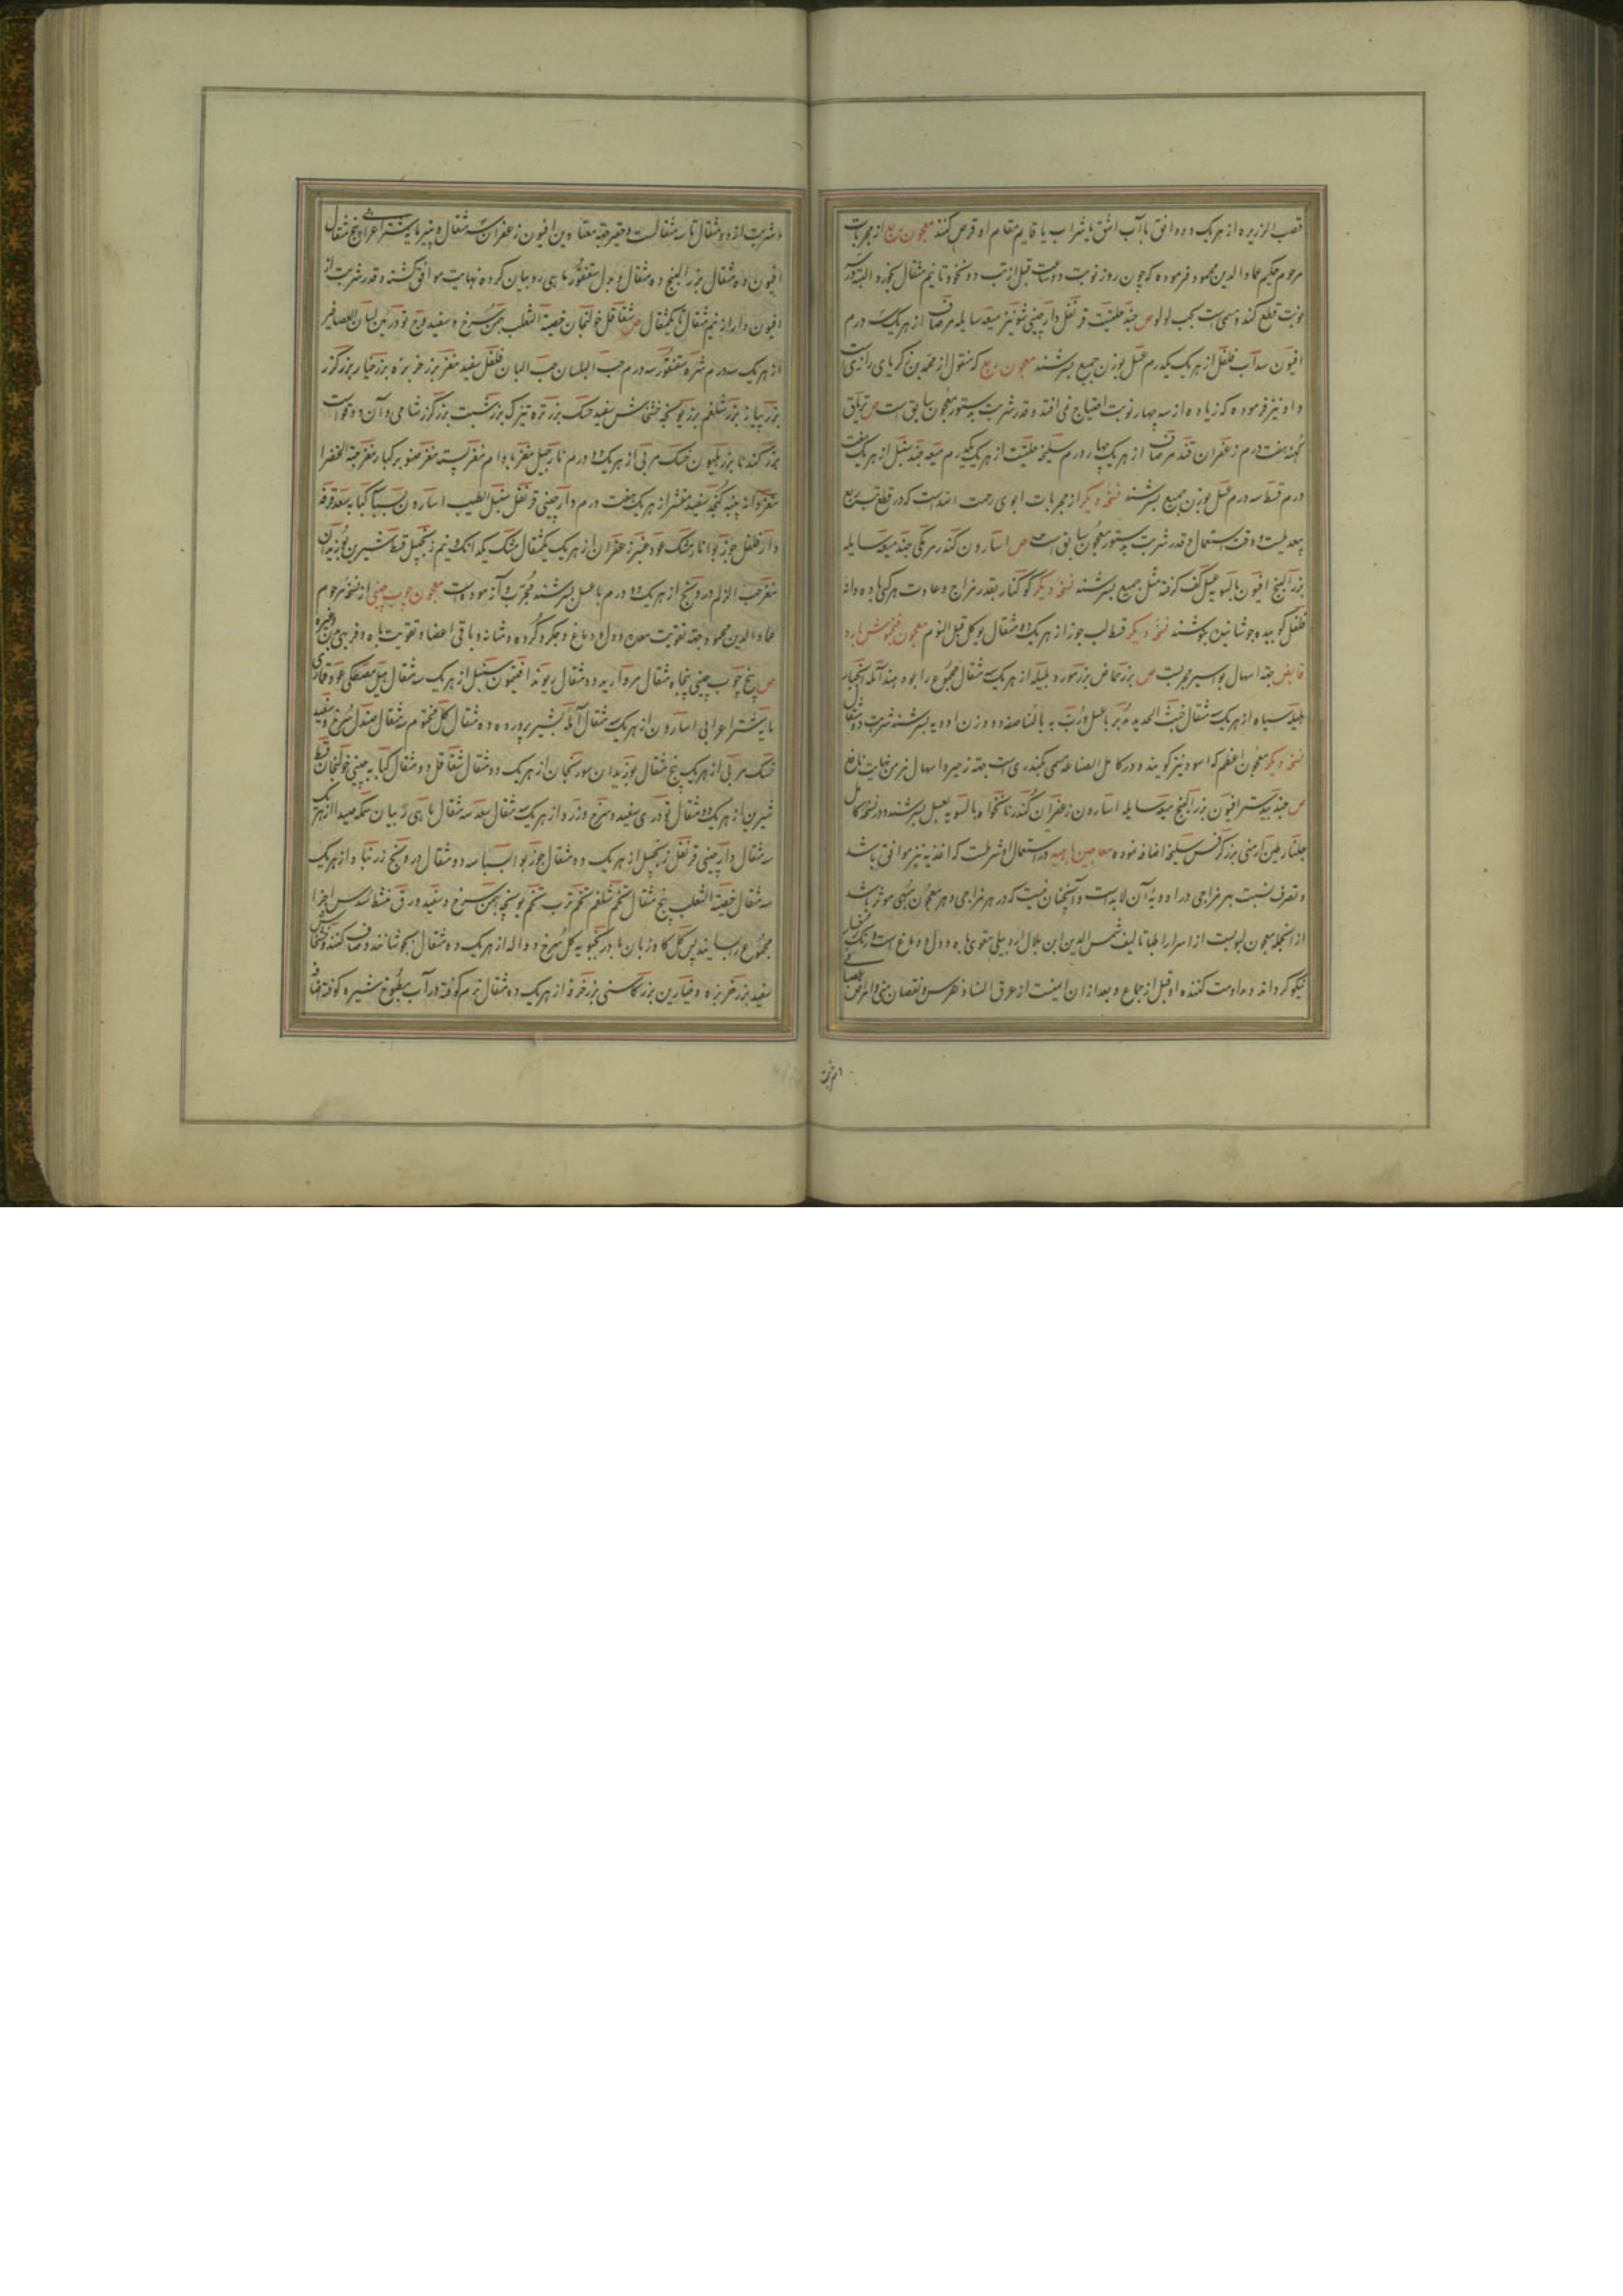 قصب الزریره از هریک دو دانق با آب اشق یا شراب یا قایم مقام آن قرص کنند معجون ربع از مجربات
مرحوم حکیم عماد الدین محمود فرموده که چون روز نوبت دو ساعت قبل از تب دو نخود تا نیم مثقال بخورد البته در سه
نوبت قطع کند و مسمی است بحب لولو ص جند حلتیت قرنفل دارچینی شونیز میعه سایله مر صاف از هریک سه درم
افیون سداب فلفل از هریک یکدرم عسل بوزن جمیع بسرشند معجون ربع که منقول از محمد بن زکریای رازی است
و او نیز فرموده که زیاده از سه چهار نوبت احتیاج نمی افتد و قدر شربت بدستور معجون سابق است ص تریاق
کهنه هفت درم زعفران قند مر صاف از هریک چهار درم سلیخه حلتیت از هریک یکدرم میعه جند سنبل از هریک هفت
درم قسط سه درم عسل بوزن جمیع بسرشند نسخه دیگر از مجربات ابوی رحمت الله است که در قطع تب ربع
بیعدیلست و وقت استعمال و قدر شربت بدستور معجون سابق است ص اسارون کندر مر مکی جند میعه سایله
بزر البنج افیون بالسویه عسل کف گرفته مثل جمیع بسرشند نسخه دیگر کوکنار بقدر مزاج و عادت هرکس با ده دانه
فلفل کوبیده جوشانیده بنوشند نسخه دیگر قسط لب جوز از هریک ده مثقال یوکل قبل النوم معجون فنجنوش بارد
قابض جهة اسهال بواسیر مجربست ص بزر حماض بزر مورد بلیله از هریک سه مثقال مجموع را بوداده اند آمله انجبار
هلیله سیاه از هریک سه مثقال خبث الحدید مدبر با عسل و رب به بالمناصفه دو وزن ادویه بسرشند شربت دو مثقال
نسخه دیگر معجون اعظم که اسود نیز گویند و در کامل الصناعه مسمی بکندری است جهة زحیر و اسهال مزمن بغایت نافع
ص جند بیدستر افیون بزر البنج میعه سایله اسارون زعفران کندر نانخواه بالسویه بعسل بسرشند و در نسخه کامل
جلنار طین ارمنی بزر کرفس سلیخه اضافه نموده معاجین باهیه در استعمال او شرطست که اغذیه نیز موافق باشد
و تصرف نسبت بهر مزاجی در ادویهٔ آن لابد است و آنچنان نیست که در هر مزاجی و هر معجون مبهی موثر باشد
از آنجمله معجون لبوبست از اسرار اطبا تالیف شمس الدین ابن بلال اردبیلی مقوی باه و دل و دماغ است و رنگ رخسار
نیکو گرداند و مداومت کننده او قبل از جماع و بعد از آن ایمنست از عرق النسا و نقرس و نقصان منی و امراض عصبانی
و شربت از دو مثقال تا سه مثقالست و حقیر جهة معتادین افیون زعفران سه مثقال و پنیر مایه شتر اعرابی پنج مثقال
افیون ده مثقال بزر البنج ده مثقال و بدل سقنقور ماهی روبیان کرده نهایت موافق گشته و قدر شربت از
افیون دار از نیم مثقال تا یکمثقال ص شقاقل خولنجان خصیة الثعلب بهمن سرخ و سفید و بوزیدان تودریین لسان العصافیر
از هریک سه درم سره سقنقور سه درم حب البلسان حب البان فلفل سفید مغز بزر خربزه بزر خیار بزر گزر
بزر پیاز بزر شلغم بزر یونجه خشخاش سفید خسک بزر تره تیزک بزر شبت بزر گزر شامی و آن دوقوست
بزر گندنا بزر هلیون خسک مربی از هریک ده درم نارجیل مغز بادام مغز پسته مغز صنوبر کبار مغز حبة الخضرا
مغز دانه پنبه کنجد سفید مقشر از هریک هفت درم دارچینی قرنفل سنبل الطیب اسارون بسباسه کبابه سعد قرفه
دارفلفل جوزبوا نارمشک عود عنبر زعفران از هریک یکمثقال مشک یکدانک و نیم زنجبیل قسط شیرین بوزیدان
مغز حب الزلم درونج از هریک ده درم با عسل بسرشند مجرب و آزموده است معجون چوب چینی از نسخه مرحوم
عماد الدین محمود جهة تقویت معده و دل و دماغ و جگر و گرده و مثانه و باقی اعضا و تقویت باه و فربهی بدن و غیره
ص بیخ چوب چینی پنجاه مثقال مروارید ده مثقال ریوند افتیمون سنبل از هریک سه مثقال هیل مصطکی عود قماری
مایه شتر اعرابی اسارون از هریک سه مثقال آمله بشیر پرورده ده مثقال گل مختوم سه مثقال صندل سرخ و سفید
خسک مربی از هریک پنج مثقال بوزیدان سورنجان از هریک دو مثقال شقاقل دو مثقال کبابه چینی خولنجان قسط
شیرین از هریک ده مثقال تودری سفید و سرخ و زرد از هریک سه مثقال سعد سه مثقال ماهی روبیان سمکه صیدا از هریک
سه مثقال دارچینی قرنفل زنجبیل از هریک ده مثقال جوزبوا بسباسه دو مثقال درونج زرنباد از هریک
سه مثقال خصیة الثعلب پنج مثقال تخم شلغم تخم ترب تخم یونجه بهمن سرخ و سفید ورق
مجموع را بسایند پس گل گاوزبان بادرنجبویه گل سرخ دواله از هریک ده مثقال بجوشانند و صاف کنند و خشخاش
سفید بزر خربزه و خیارین بزر کاسنی بزر خرفه از هریک ده مثقال نرم کوفته در آب مطبوخ شیره گرفته
و شربت